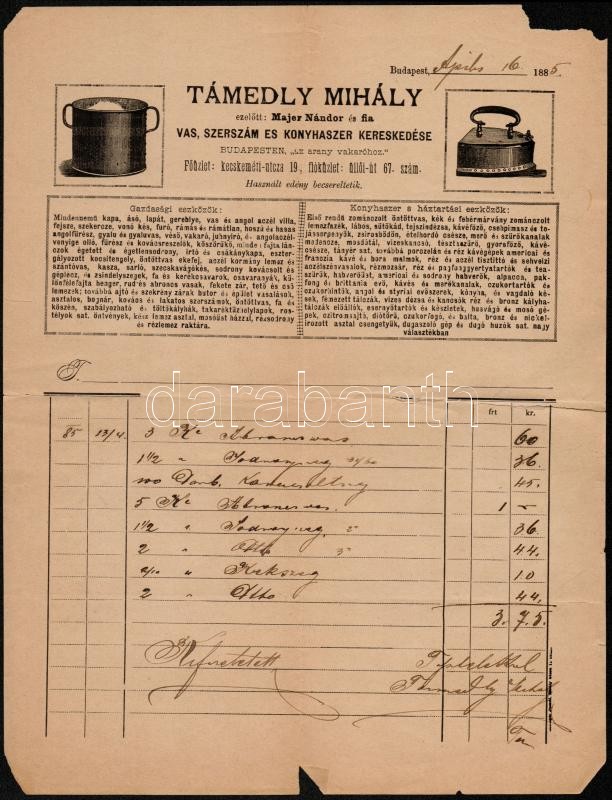 Budapest, Április 16. 1885.
TÁMEDLY MIHÁLY
ezelőtt: Majer Nándor és fia
VAS, SZERSZÁM ES KONYHASZER KERESKEDÉSE
BUDAPESTEN, „az arany vakaróhoz."
Főüzlet: kecskeméti-utcza 19, fióküzlet: üllői-út 67. szám.
Használt edény becseréltetik.
Gazdasági eszközök:
Mindennemű kapa, ásó, lapát, gereblye, vas és angol aczél villa,
fejsze, szekercze, vonó kés, furó, rámás és rámátlan, hosszú és hasas
angolfűrész, gyalu és gyaluvas, véső, vakaró, juhnyíró, és angolaczél-
venyige olló, fűrész és kovácsreszelők, köszörükő, mindenfajta lán-
czok égetett és égetlensodrony, irtó és csákánykapa, eszter-
gályozott kocsitengely, öntöttvas ekefej, aczél kormány lemez és
szántóvas, kasza, sarló, szecskavágókés, sodrony kovácsolt és
gépszeg, és zsindelyszegek, fa és kerékcsavarok, osvaranyák, kü-
lönfélefajta henger, rud és abroncs vasak, fekete zár, tető és cső
lemezek; továbbá ajtó és szekrény zárak butor és épület vasalások,
asztalos, bognár, kovács és lakatos szerszámok, öntöttvas, fa és
kőszén, szabályozható és töltőkályhák, takaréktűzhelylapok, ros-
télyok sat. öntvények, kész lemez asztal, mosóüst házzal, rézsodrony
és rézlemez raktára.
Konyhaszer s háztartási eszközök:
Első rendű zománczolt öntöttvas, kék és fehérmárvány zománczolt
lemezfazék, lábos, sütőkád, tejszinedzss, kávéfőző, csehpimasz és to-
jássserpenyők, zsirosbödön, ételhordó csésze, merő és szűrőkanalak
medencze, mosdótál, vizeskancsó, tésztaszűrő, gyorsfőző, kávé-
csésze, tányér sat. továbbá porczelán és réz kávégépek amerikai és
franczia kávé és bors malmok, réz és aczél tisztító és selvehzi
aczélszésvasalók, rézmozsár, réz és pagfonggyertyatartók és tea-
szűrők, habverőüst, amerikai és sodrony habverők, alpacca, pak-
fong és brittania evő, kávés és merőkanalak, czukortartók és
czukordobozok, angol és styriai evőszerek, konyha, és vagdaló ké-
sek, fémezett tálczák, vizes dózsa és kancsók réz és bronz kályha-
tálczák előállók, esernyőtartók és készletek, husvágó és mosó gé-
pek, czitromsajtó, diótörő, czukorfogó, és balta, bronz és nickel-
irozott asztali csengetyűk, dugaszoló gép és dugó huzók sat. nagy
választékban
T.
frt kr.
85 13/4. 3 Ko Abroncsvas 60
1 1/2 „ 36.
100 Darb. 45.
5 Ko Abroncsvas. 1 –
1 1/2 „ 36
2 „ Dtto 44.
„ 10
2 „ Dtto 44.
3. 75.
Kifizetett
Tisztelettel
Támedly Mihály
darabanth